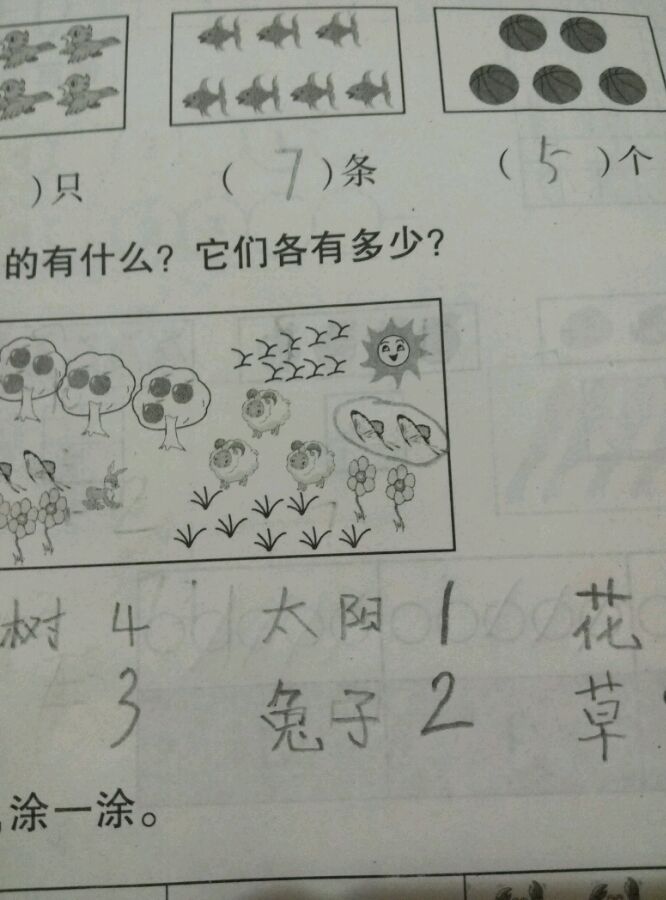 )只 ( 7 )条 ( 5 )个
的有什么？它们各有多少？
树 4 太阳 1 花
3 兔子 2 草
涂一涂。